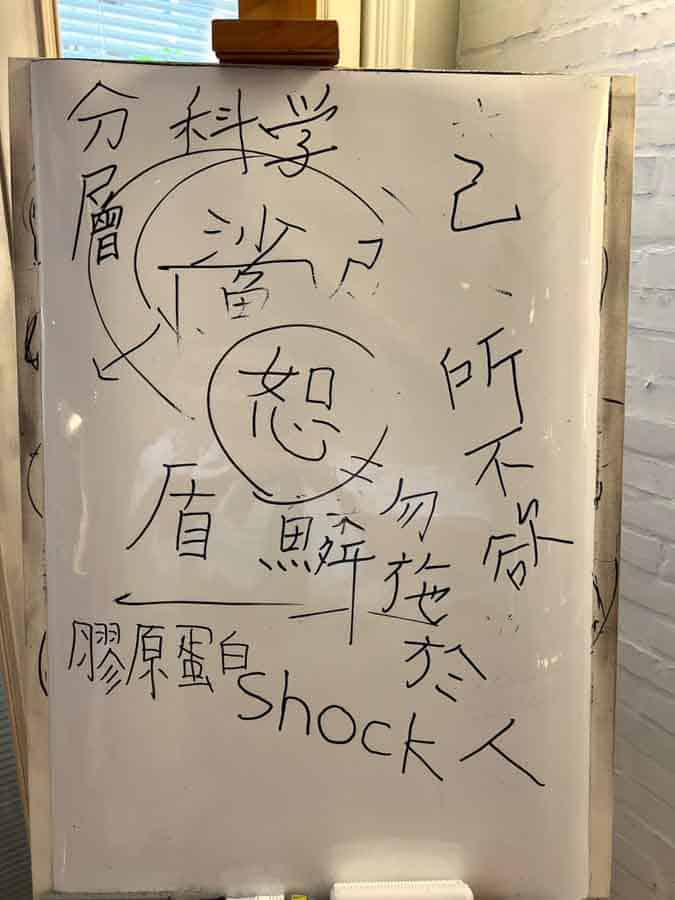 分層
科学
鯊
恕
盾鱗
膠原蛋白
Shock
己所不欲
勿施於人